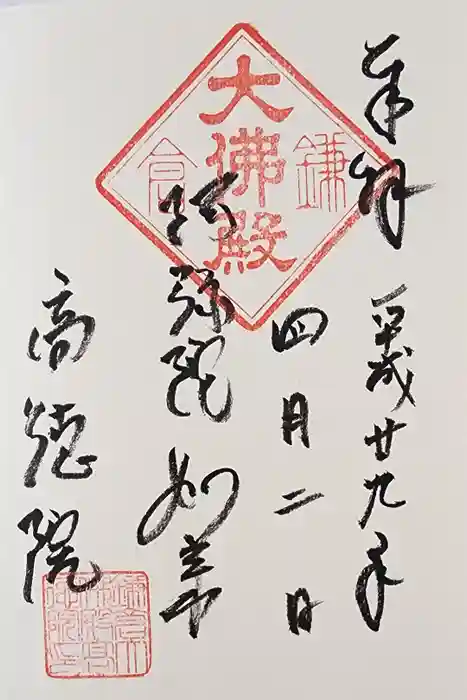 奉拝
平成廿九年
四月二日
大佛殿
鎌倉
阿弥陀如来
高徳院